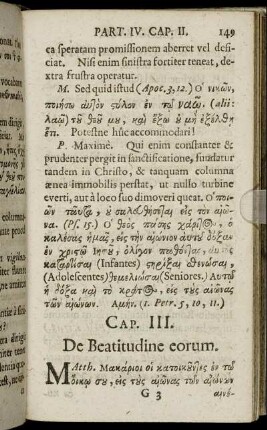 PART. IV. CAP. II. 149
ea speratam promissionem aberret vel defi-
ciat. Nisi enim sinistra fortiter teneat, de-
xtra frustra operatur.
M. Sed quid istud (Apoc. 3, 12.) Ὁ νικῶν,
ποιήσω αὐτὸν στύλον ἐν τῷ ναῷ (alii:
λαῷ) τοῦ θεοῦ μου, καὶ ἔξω οὐ μὴ ἐξέλθῃ
ἔτι. Potestne huc accommodari?
P. Maximè. Qui enim constanter &
prudenter pergit in sanctificatione, fundatur
tandem in Christo, & tanquam columna
ænea immobilis perstat, ut nullo turbine
everti, aut à loco suo dimoveri queat. Ὁ ποι-
ῶν ταῦτα, οὐ σαλευθήσεται εἰς τὸν αἰῶ-
να. (Ps. 15.) Ὁ θεὸς πάσης χάριτος, ὁ
καλέσας ἡμᾶς, εἰς τὴν αἰώνιον αὐτοῦ δόξαν
ἐν χριστῷ Ἰησοῦ, ὀλίγον παθόντας, αὐτὸς
καταρτίσαι (Infantes) στηρίξαι σθενώσαι,
(Adolescentes) θεμελιώσαι (Seniores.) Αὐτῷ
ἡ δόξα καὶ τὸ κράτος, εἰς τοὺς αἰῶνας
τῶν αἰώνων. Αμήν. (1. Petr. 5, 10, 11.)
CAP. III.
De Beatitudine eorum.
Matth. Μακάριοι οἱ κατοικοῦντες ἐν τῷ
οἴκῳ σου, εἰς τοὺς αἰῶνας τῶν αἰώνων
G 3